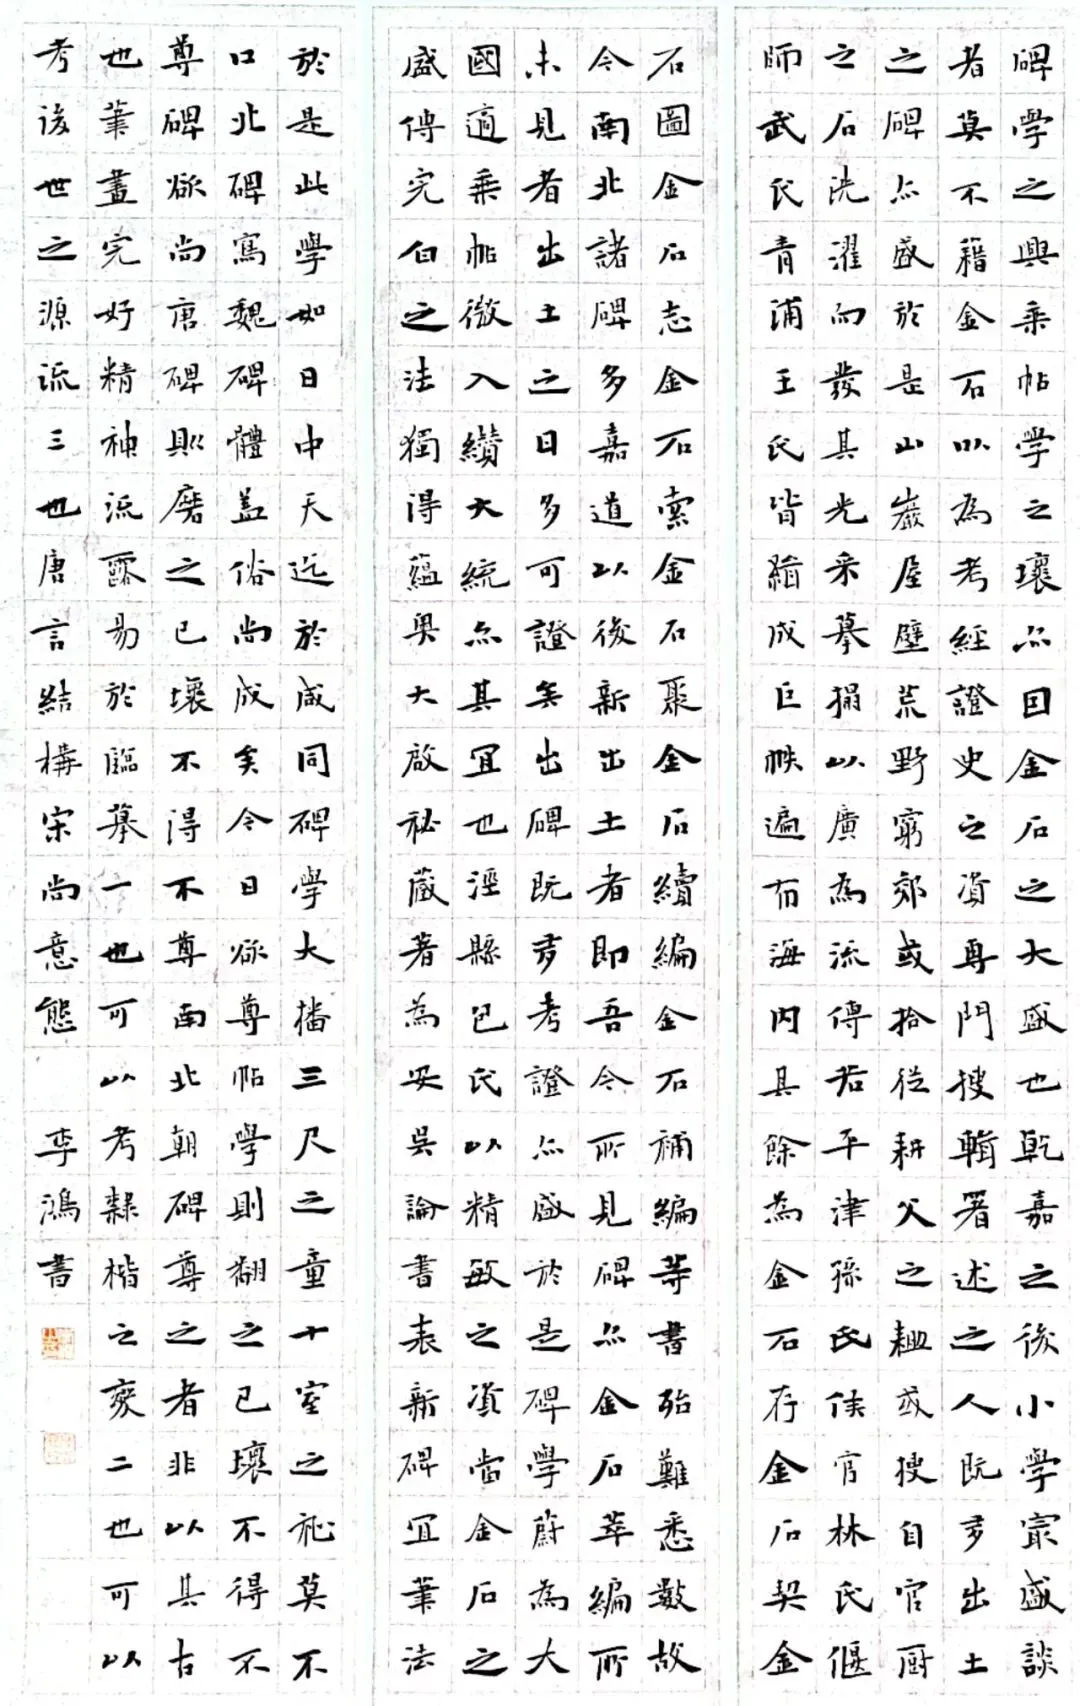 碑學之興乘帖學之壞亦因金石之大盛也乾嘉之後小學最盛談
者莫不藉金石以為考經證史之資專門搜輯著述之人既多出土
之碑亦盛於是山巖屋壁荒野窮郊或拾從耕父之鋤或搜自官厨
之石洗濯而發其光采摹搨以廣為流傳若平津孫氏侯官林氏偃
師武氏青浦王氏皆緝成巨帙遍布海內其餘為金石存金石契金
石圖金石志金石索金石聚金石續編金石補編等書殆難悉數故
今南北諸碑多嘉道以後新出土者即吾今所見碑亦金石萃編所
未見者出土之日多可證矣出碑既多考證亦盛於是碑學蔚為大
國適乘帖微入纘大統亦其宜也涇縣包氏以精敏之資當金石之
盛傳完白之法獨得蘊奧大啟秘藏著為安吳論書表新碑宜筆法
於是此學如日中天迄於咸同碑學大播三尺之童十室之社莫不
口北碑寫魏碑體蓋俗尚成矣今日欲尊帖學則翻之已壞不得不
尊碑欲尚唐碑則磨之已壞不得不尊南北朝碑尊之者非以其古
也筆畫完好精神流露易於臨摹一也可以考隸楷之變二也可以
考後世之源流三也唐言結構宋尚意態 李鴻書